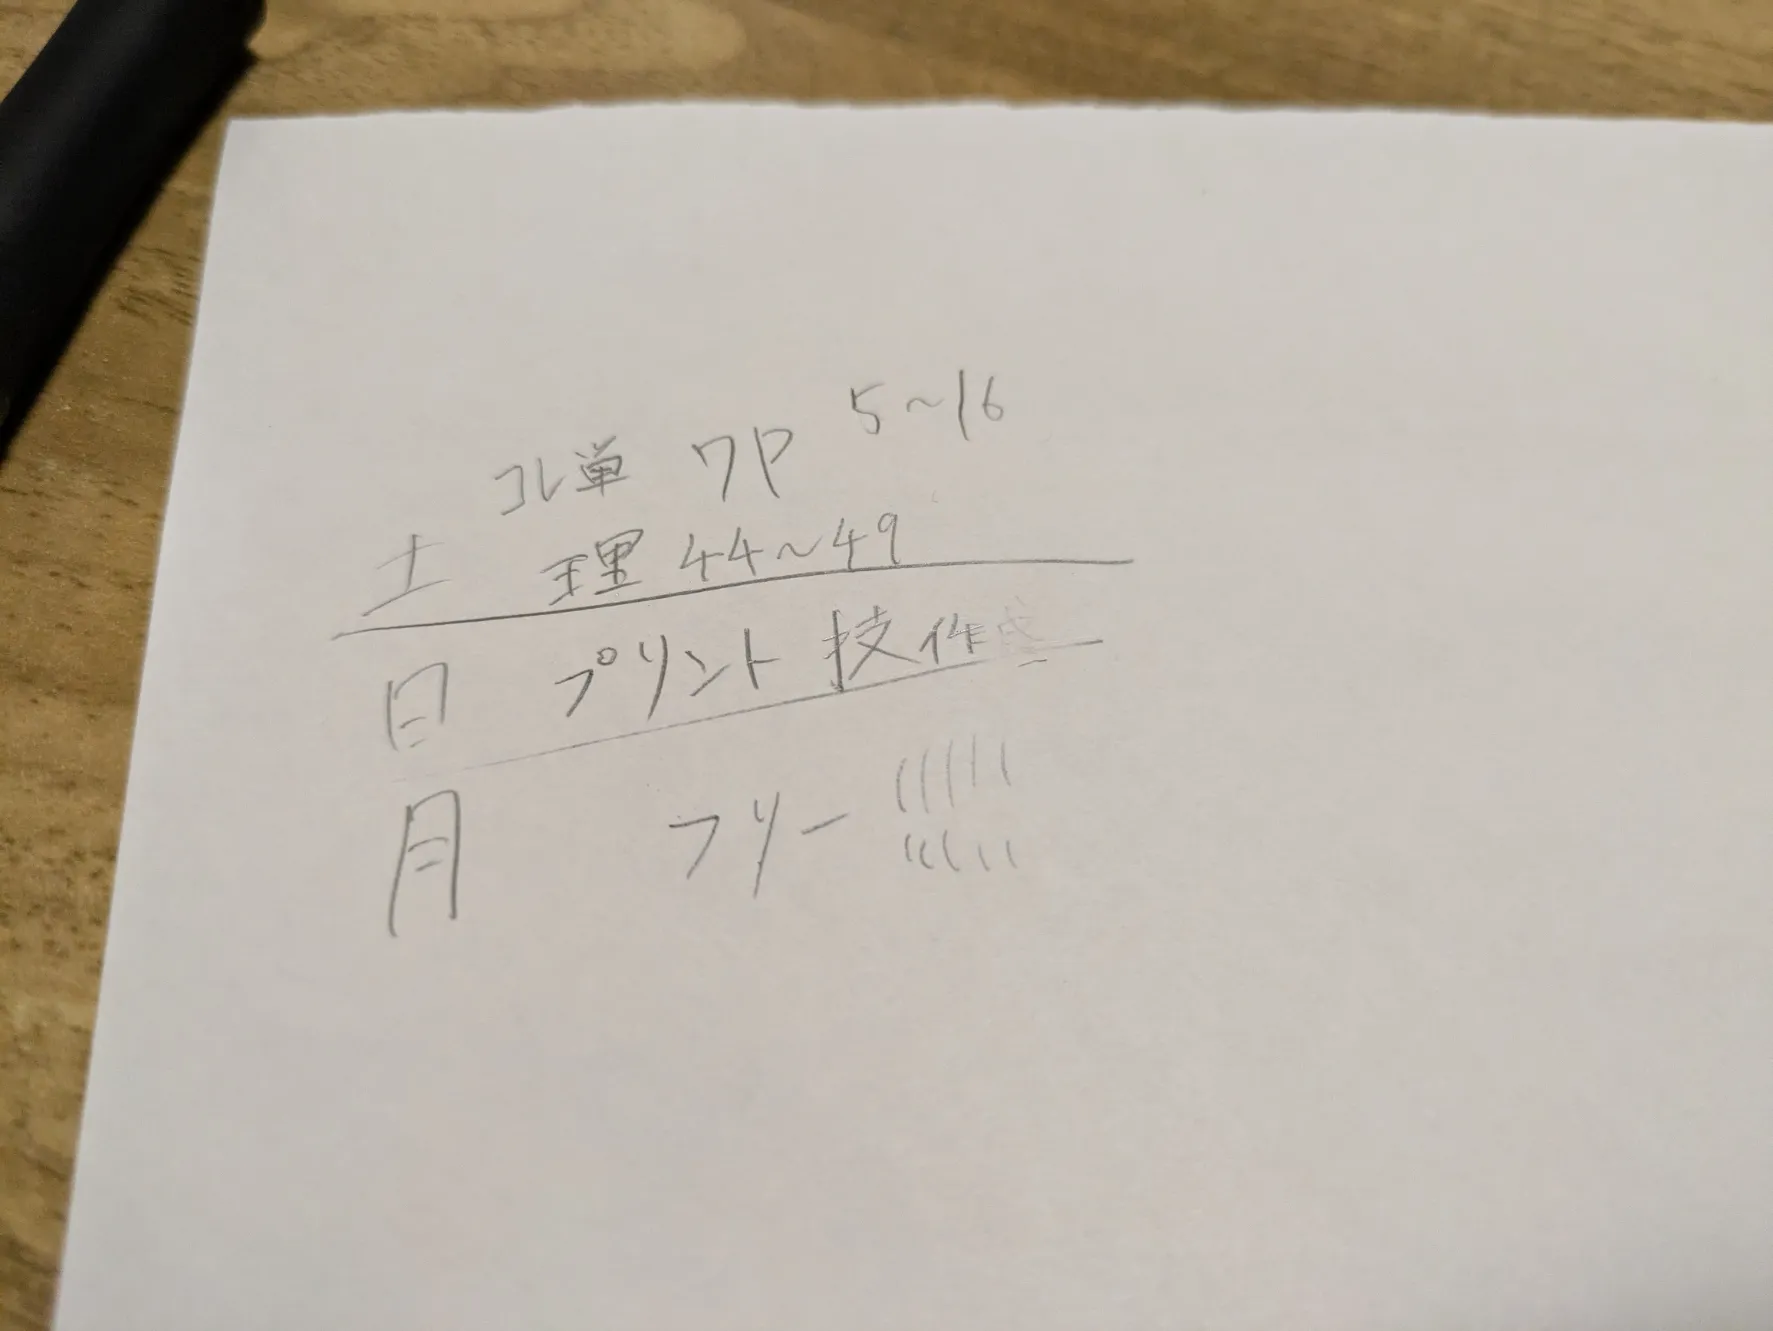 コレ単 ワP 5~16
土 理 44~49
日 プリント 技作
月 フリー !!!!!